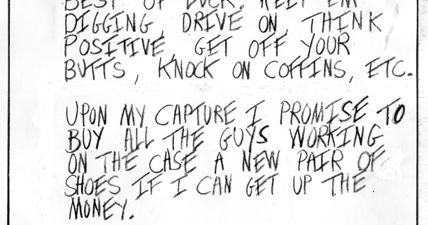 BEST OF LUCK. KEEP EM
DIGGING, DRIVE ON THINK
POSITIVE, GET OFF YOUR
BUTTS, KNOCK ON COFFINS, ETC.
UPON MY CAPTURE I PROMISE TO
BUY ALL THE GUYS WORKING
ON THE CASE A NEW PAIR OF
SHOES IF I CAN GET UP THE
MONEY.